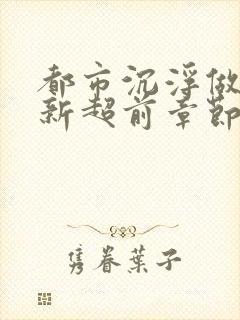 都市沉浮做
新超前章節
隽眷葉子